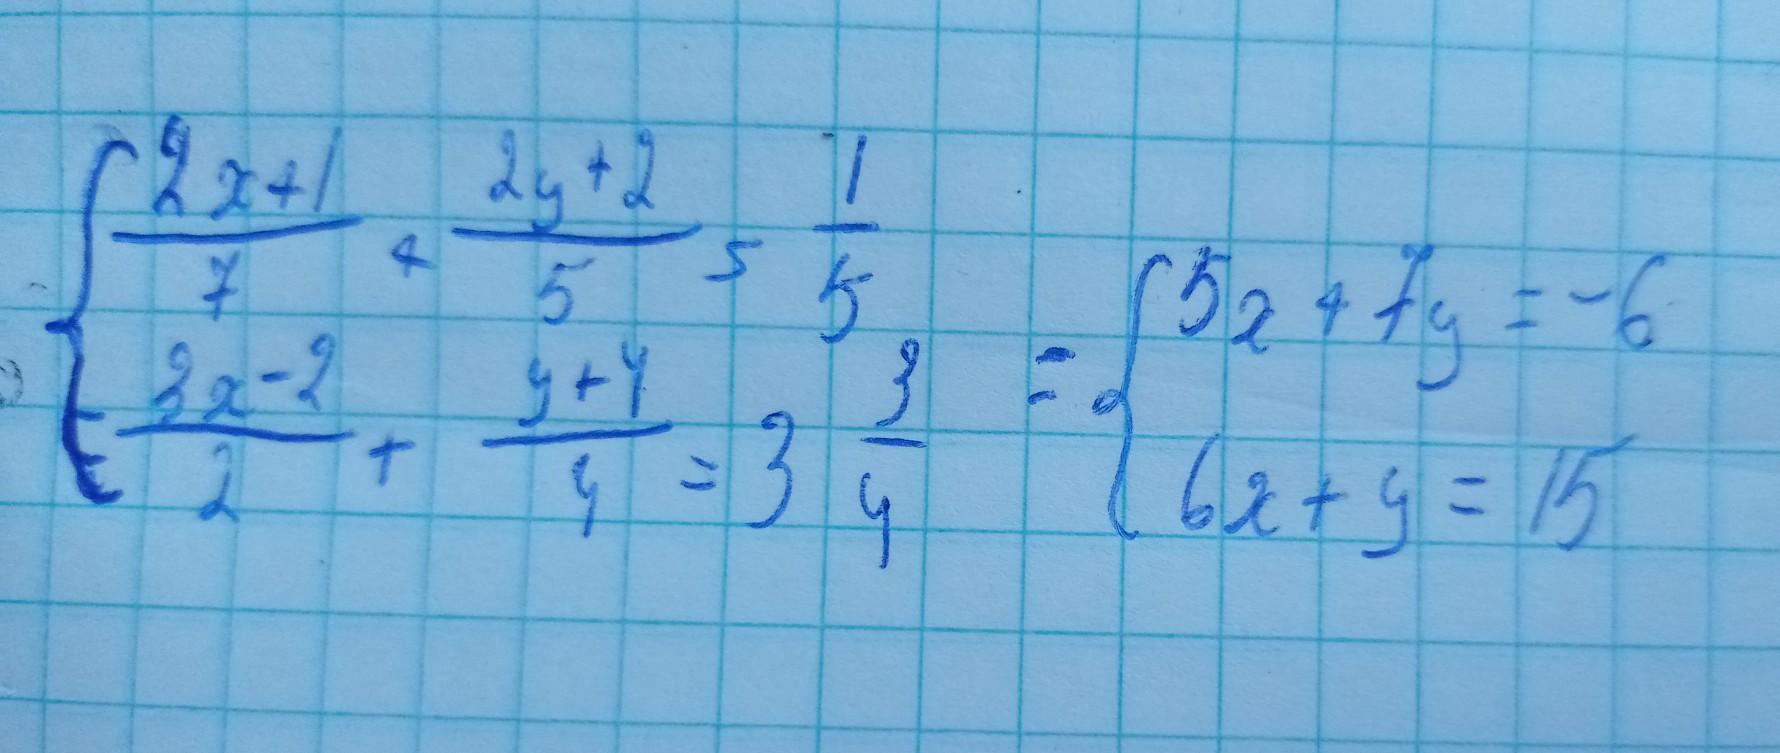 { (2x+1)/7 + (2y+2)/5 = 1/5
(3x-2)/2 + (y+4)/4 = 3 3/4
= { 5x + 7y = -6
6x + y = 15